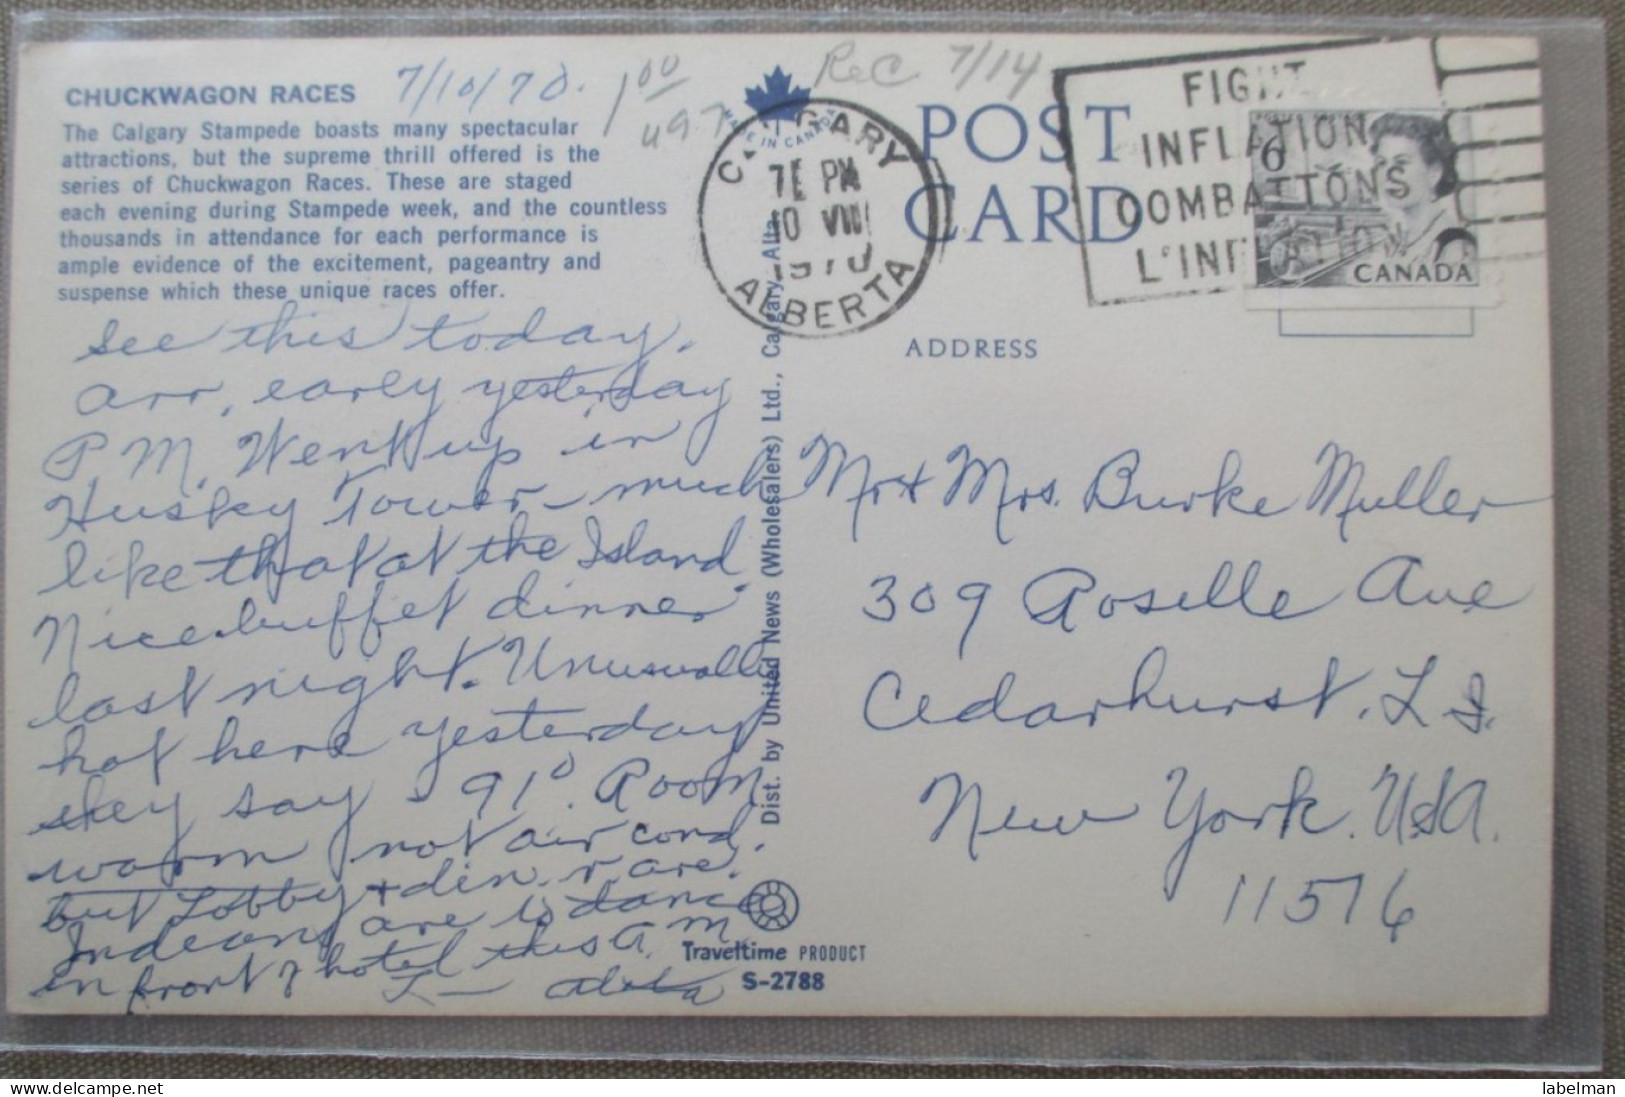 CHUCKWAGON RACES
The Calgary Stampede boasts many spectacular
attractions, but the supreme thrill offered is the
series of Chuckwagon Races. These are staged
each evening during Stampede week, and the countless
thousands in attendance for each performance is
ample evidence of the excitement, pageantry and
suspense which these unique races offer.
7/10/70.
1 00
497
Rec 7/14
MADE IN CANADA
CALGARY
PM
10 VII
1970
ALBERTA
POST
CARD
FIGHT
INFLATION
COMBATTONS
L'INFLATION
6
CANADA
ADDRESS
see this today.
Arr. early yesterday
P.M. Went up in
Husky Tower - much
like that at the Island.
Nice buffet dinner
last night. Unusually
hot here yesterday
they say - 91°. Room
warm, not air cond.
but Lobby & din. r. are.
Indians are to dance
in front of hotel this A.M.
Dist. by United News (Wholesalers) Ltd., Calgary, Alta.
Mr & Mrs. Burke Muller
309 Roselle Ave
Cedarhurst, L.I.
New York. USA.
11516
Traveltime PRODUCT
S-2788
labelman